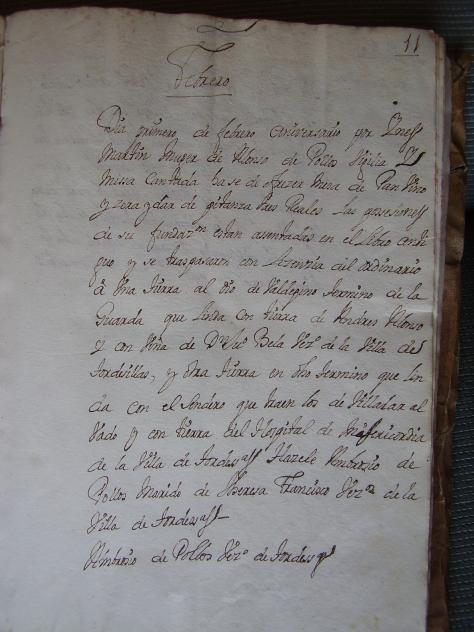 11
Febrero
Dia primero de febrero aniversario por Ynes
Martin Muger de Alonso de Pollos Vijilia Y
missa Cantada ha se de ofrezer mesa de Pan Vino
y zera y dar de pitanza tres Reales Las posesiones
de su fundazon estan asentadas en el libro anti
guo y se traspasaron con Lizenzia del ordinario
à Vna tierra al Termino de la
Guarda que linda con tierra de Andres Alonso
y con Viña de Bela Vezo de la Villa de
Tordesillas, y otra tierra en dho termino que lin
da con el Sendero que traen los de Villalar al
Vado y con tierra del Hospital de Misericordia
de la Villa de Tordesas Hazele Ambrosio de
Pollos Marido de Theresa Francisco Vezo de la
Villa de Tordesas
Ambrosio de Pollos Vezo de Tordesas